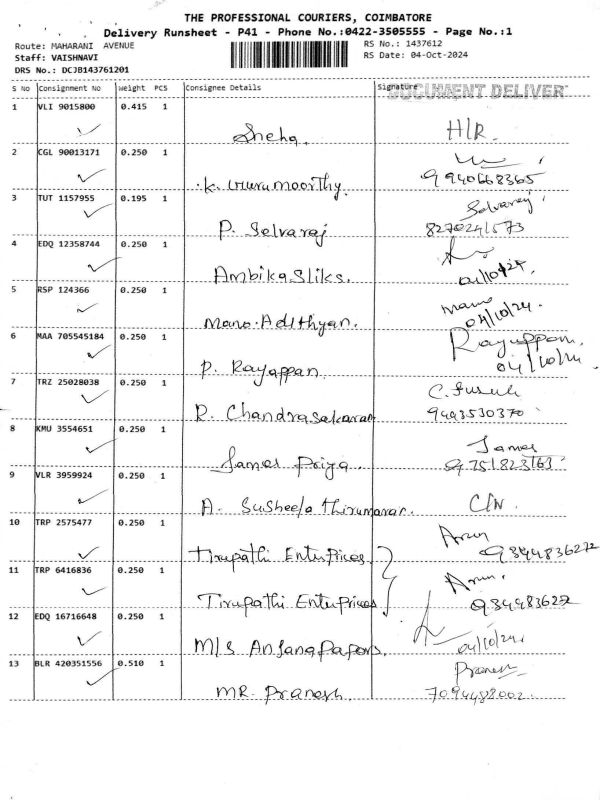 THE PROFESSIONAL COURIERS, COIMBATORE
Delivery Runsheet - P41 - Phone No.:0422-3505555 - Page No.:1
Route: MAHARANI AVENUE RS No.: 1437612
Staff: VAISHNAVI RS Date: 04-Oct-2024
DRS No.: DCJB143761201
S No Consignment No Weight PCS Consignee Details Signature DOCUMENT DELIVER
1 VLI 9015800 0.415 1
Sneha H/R
2 CGL 90013171 0.250 1
K. Gurumoorthy. 9940668365
3 TUT 1157955 0.195 1 Selvaraj
P. Selvaraj 8270241573
4 EDQ 12358744 0.250 1
Ambika Sliks. 04/10/24.
5 RSP 124366 0.250 1 mano
Mano. Adithyan. 04/10/24.
6 MAA 705545184 0.250 1 Rayappan.
P. Rayappan 04/10/24
7 TRZ 25028038 0.250 1
R. Chandrasakaran 9443530370
8 KMU 3554651 0.250 1 James
James Priya. 9751823163
9 VLR 3959924 0.250 1
A. Susheela Thirumaran. C/N
10 TRP 2575477 0.250 1 Arun
Tirupathi Enterprices 9344836272
11 TRP 6416836 0.250 1 Arun.
Tirupathi Enterprices 9344836272
12 EDQ 16716648 0.250 1
M/S Anjana Papers. 04/10/24.
13 BLR 420351556 0.510 1 Pranesh
MR. Pranesh. 7094488002.